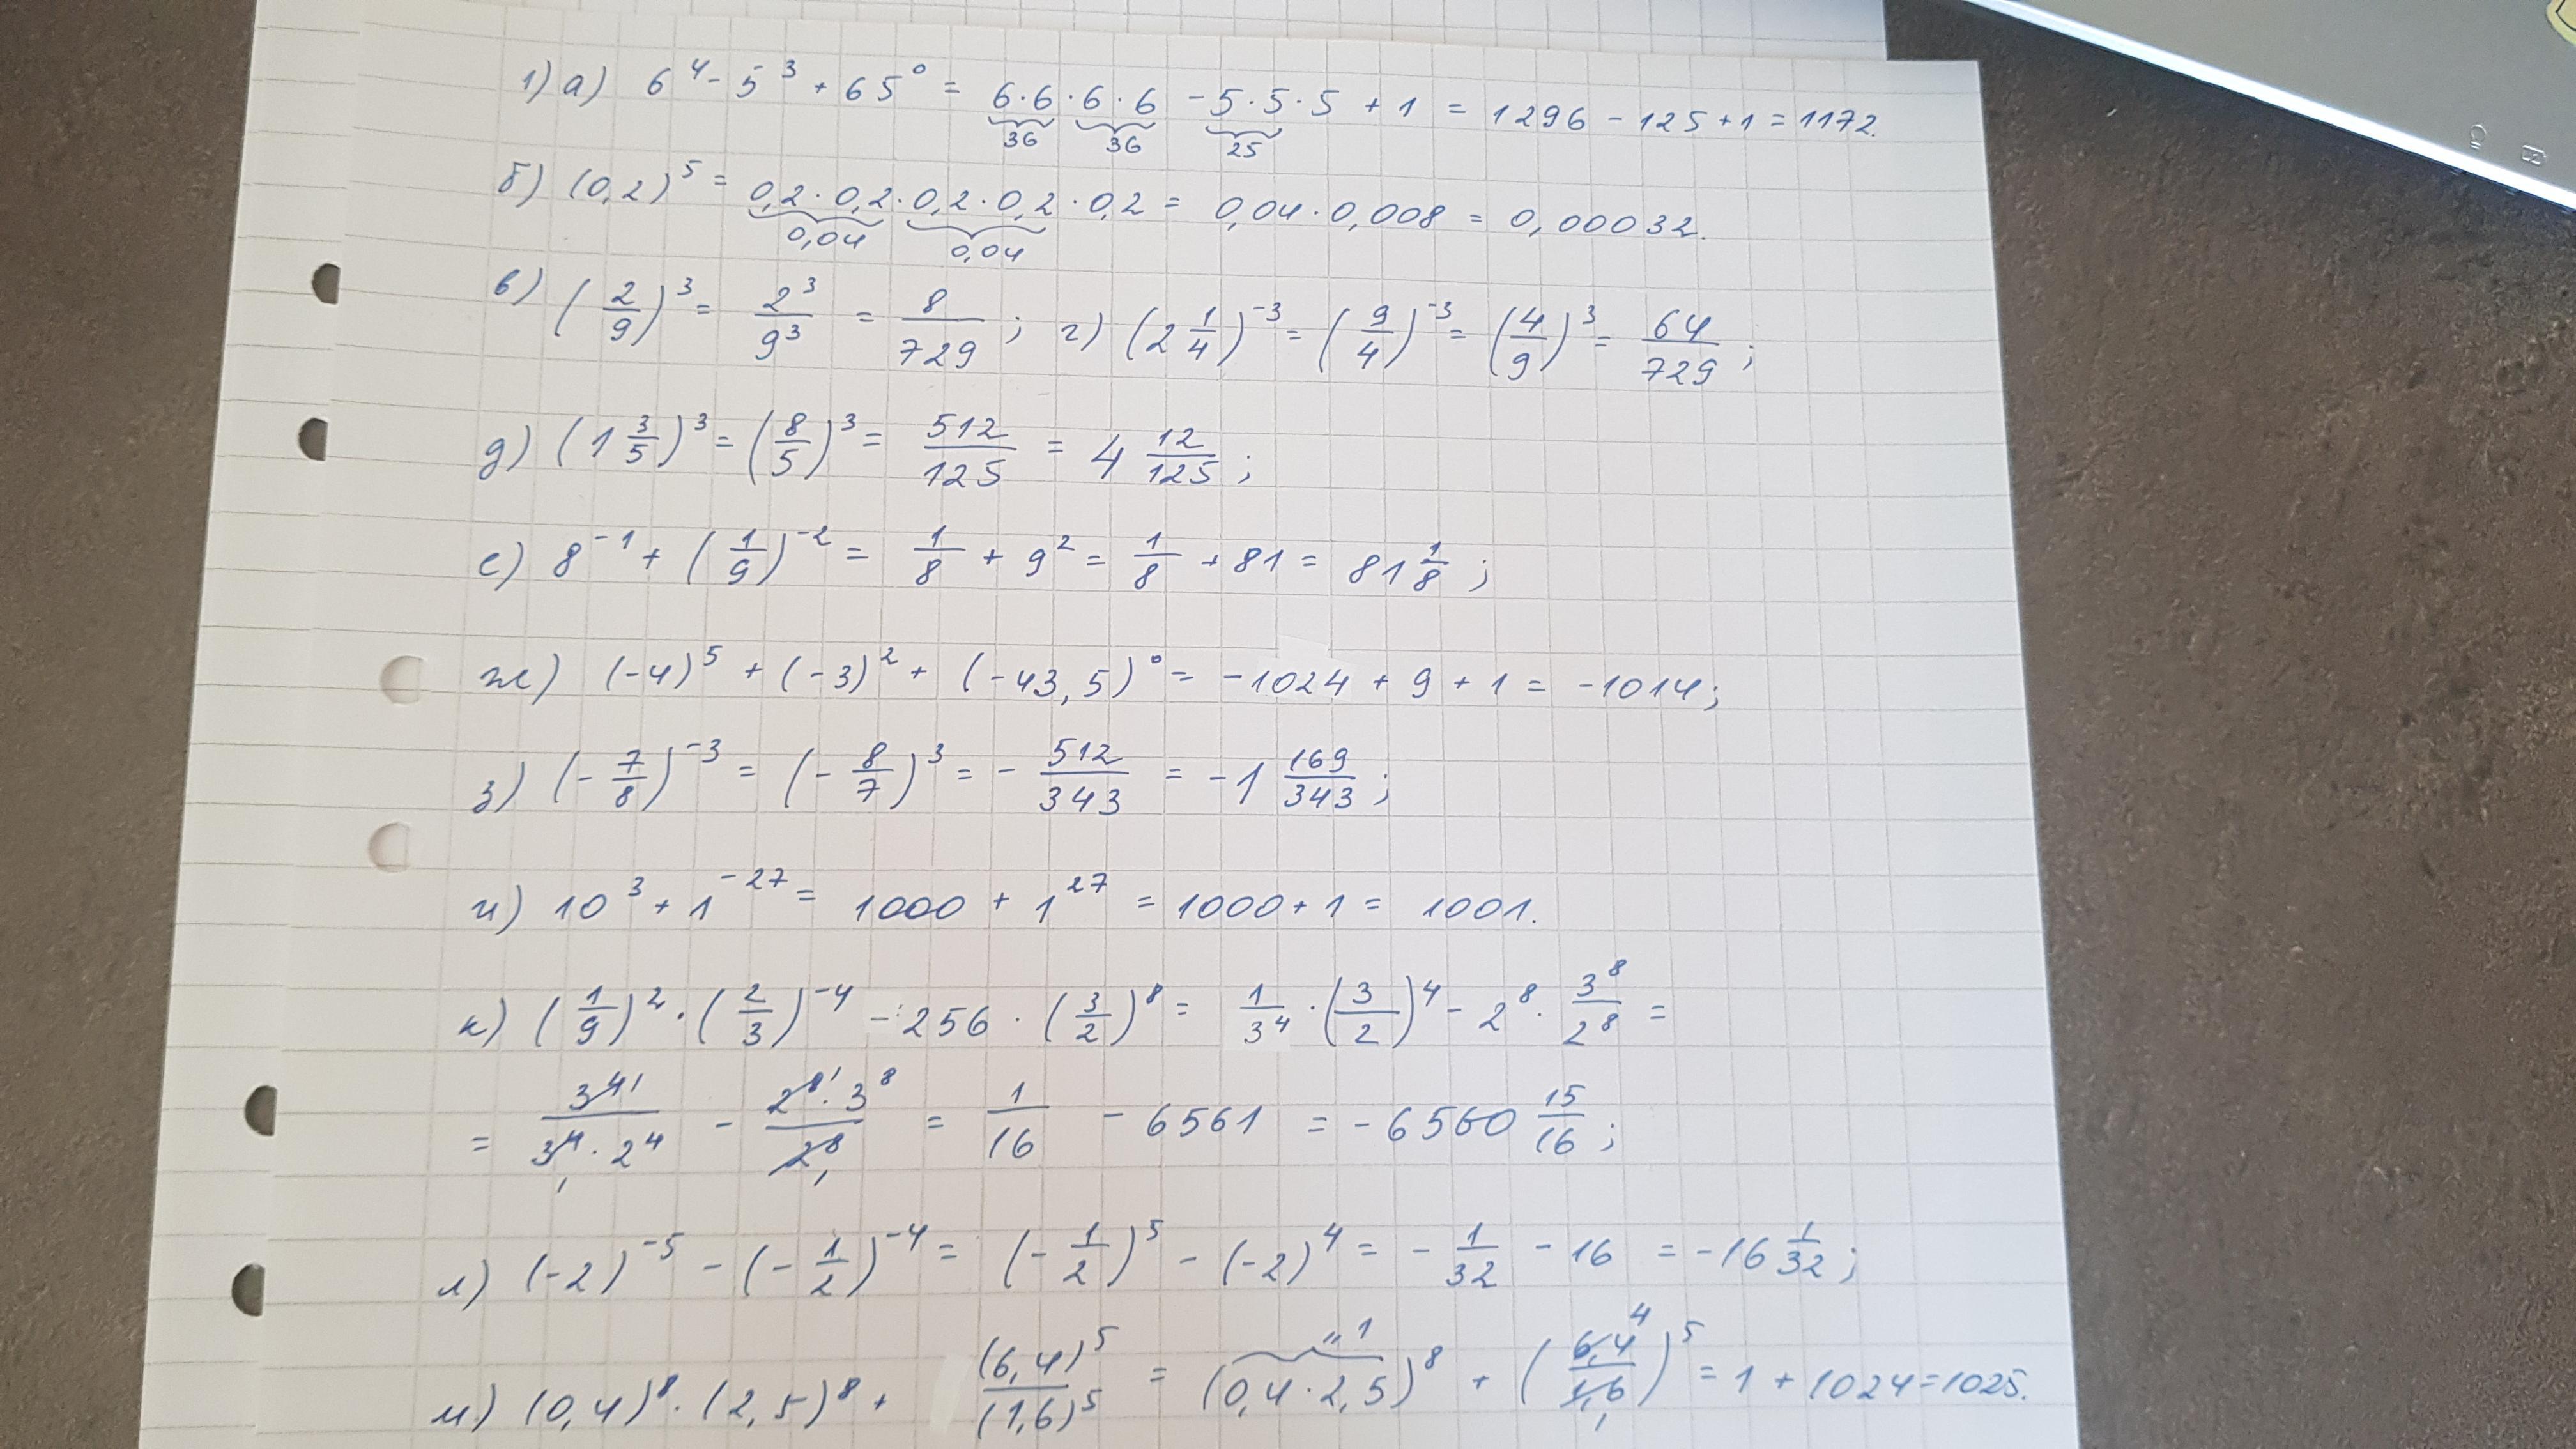 1) а) 6⁴ - 5³ + 65⁰ = 6·6·6·6 - 5·5·5 + 1 = 1296 - 125 + 1 = 1172.
36 36 25
б) (0,2)⁵ = 0,2·0,2·0,2·0,2·0,2 = 0,04·0,008 = 0,00032.
0,04 0,04
в) (2/9)³ = 2³/9³ = 8/729 ; г) (2 1/4)⁻³ = (9/4)⁻³ = (4/9)³ = 64/729 ;
д) (1 3/5)³ = (8/5)³ = 512/125 = 4 12/125 ;
е) 8⁻¹ + (1/9)⁻² = 1/8 + 9² = 1/8 + 81 = 81 1/8 ;
ж) (-4)⁵ + (-3)² + (-43,5)⁰ = -1024 + 9 + 1 = -1014 ;
з) (-7/8)⁻³ = (-8/7)³ = -512/343 = -1 169/343 ;
и) 10³ + 1⁻²⁷ = 1000 + 1²⁷ = 1000 + 1 = 1001.
к) (1/9)² · (2/3)⁻⁴ - 256 · (3/2)⁸ = 1/3⁴ · (3/2)⁴ - 2⁸ · 3⁸/2⁸ =
= 3⁴/(3⁴·2⁴) - (2⁸·3⁸)/2⁸ = 1/16 - 6561 = -6560 15/16 ;
л) (-2)⁻⁵ - (-1/2)⁻⁴ = (-1/2)⁵ - (-2)⁴ = -1/32 - 16 = -16 1/32 ;
м) (0,4)⁸ · (2,5)⁸ + (6,4)⁵/(1,6)⁵ = (0,4·2,5)⁸ + (6,4/1,6)⁵ = 1 + 1024 = 1025.